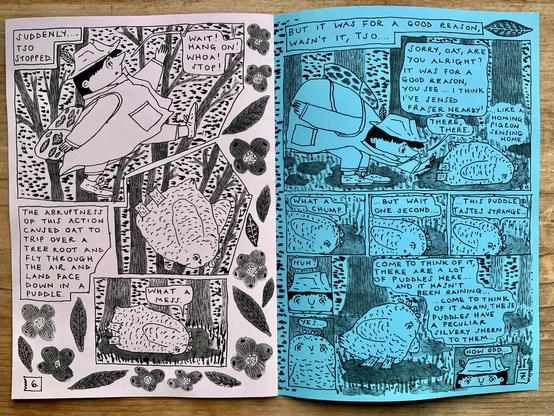 SUDDENLY....
TSO
STOPPED.
WAIT!
HANG ON!
WHOA!
STOP!
THE ABRUPTNESS
OF THIS ACTION
CAUSED OAT TO
TRIP OVER A
TREE ROOT AND
FLY THROUGH
THE AIR AND
LAND FACE
DOWN IN A
PUDDLE.
WHAT A
MESS.
6.
BUT IT WAS FOR A GOOD REASON,
WASN'T IT, TSO....
SORRY, OAT, ARE
YOU ALRIGHT?
IT WAS FOR A
GOOD REASON,
YOU SEE... I THINK
I'VE SENSED
FRASER NEARBY!
...LIKE A
HOMING
PIGEON
SENSING
HOME
THERE,
THERE.
WHAT A
CHUMP.
...BUT WAIT
ONE SECOND...
THIS PUDDLE
TASTES STRANGE...
HUH?
COME TO THINK OF IT,
THERE ARE A LOT
OF PUDDLES HERE...
AND IT HASN'T
BEEN RAINING...
...COME TO THINK
OF IT AGAIN, THESE
PUDDLES HAVE
A PECULIAR
SILVERY SHEEN
TO THEM...
YES...
HOW ODD...
7.